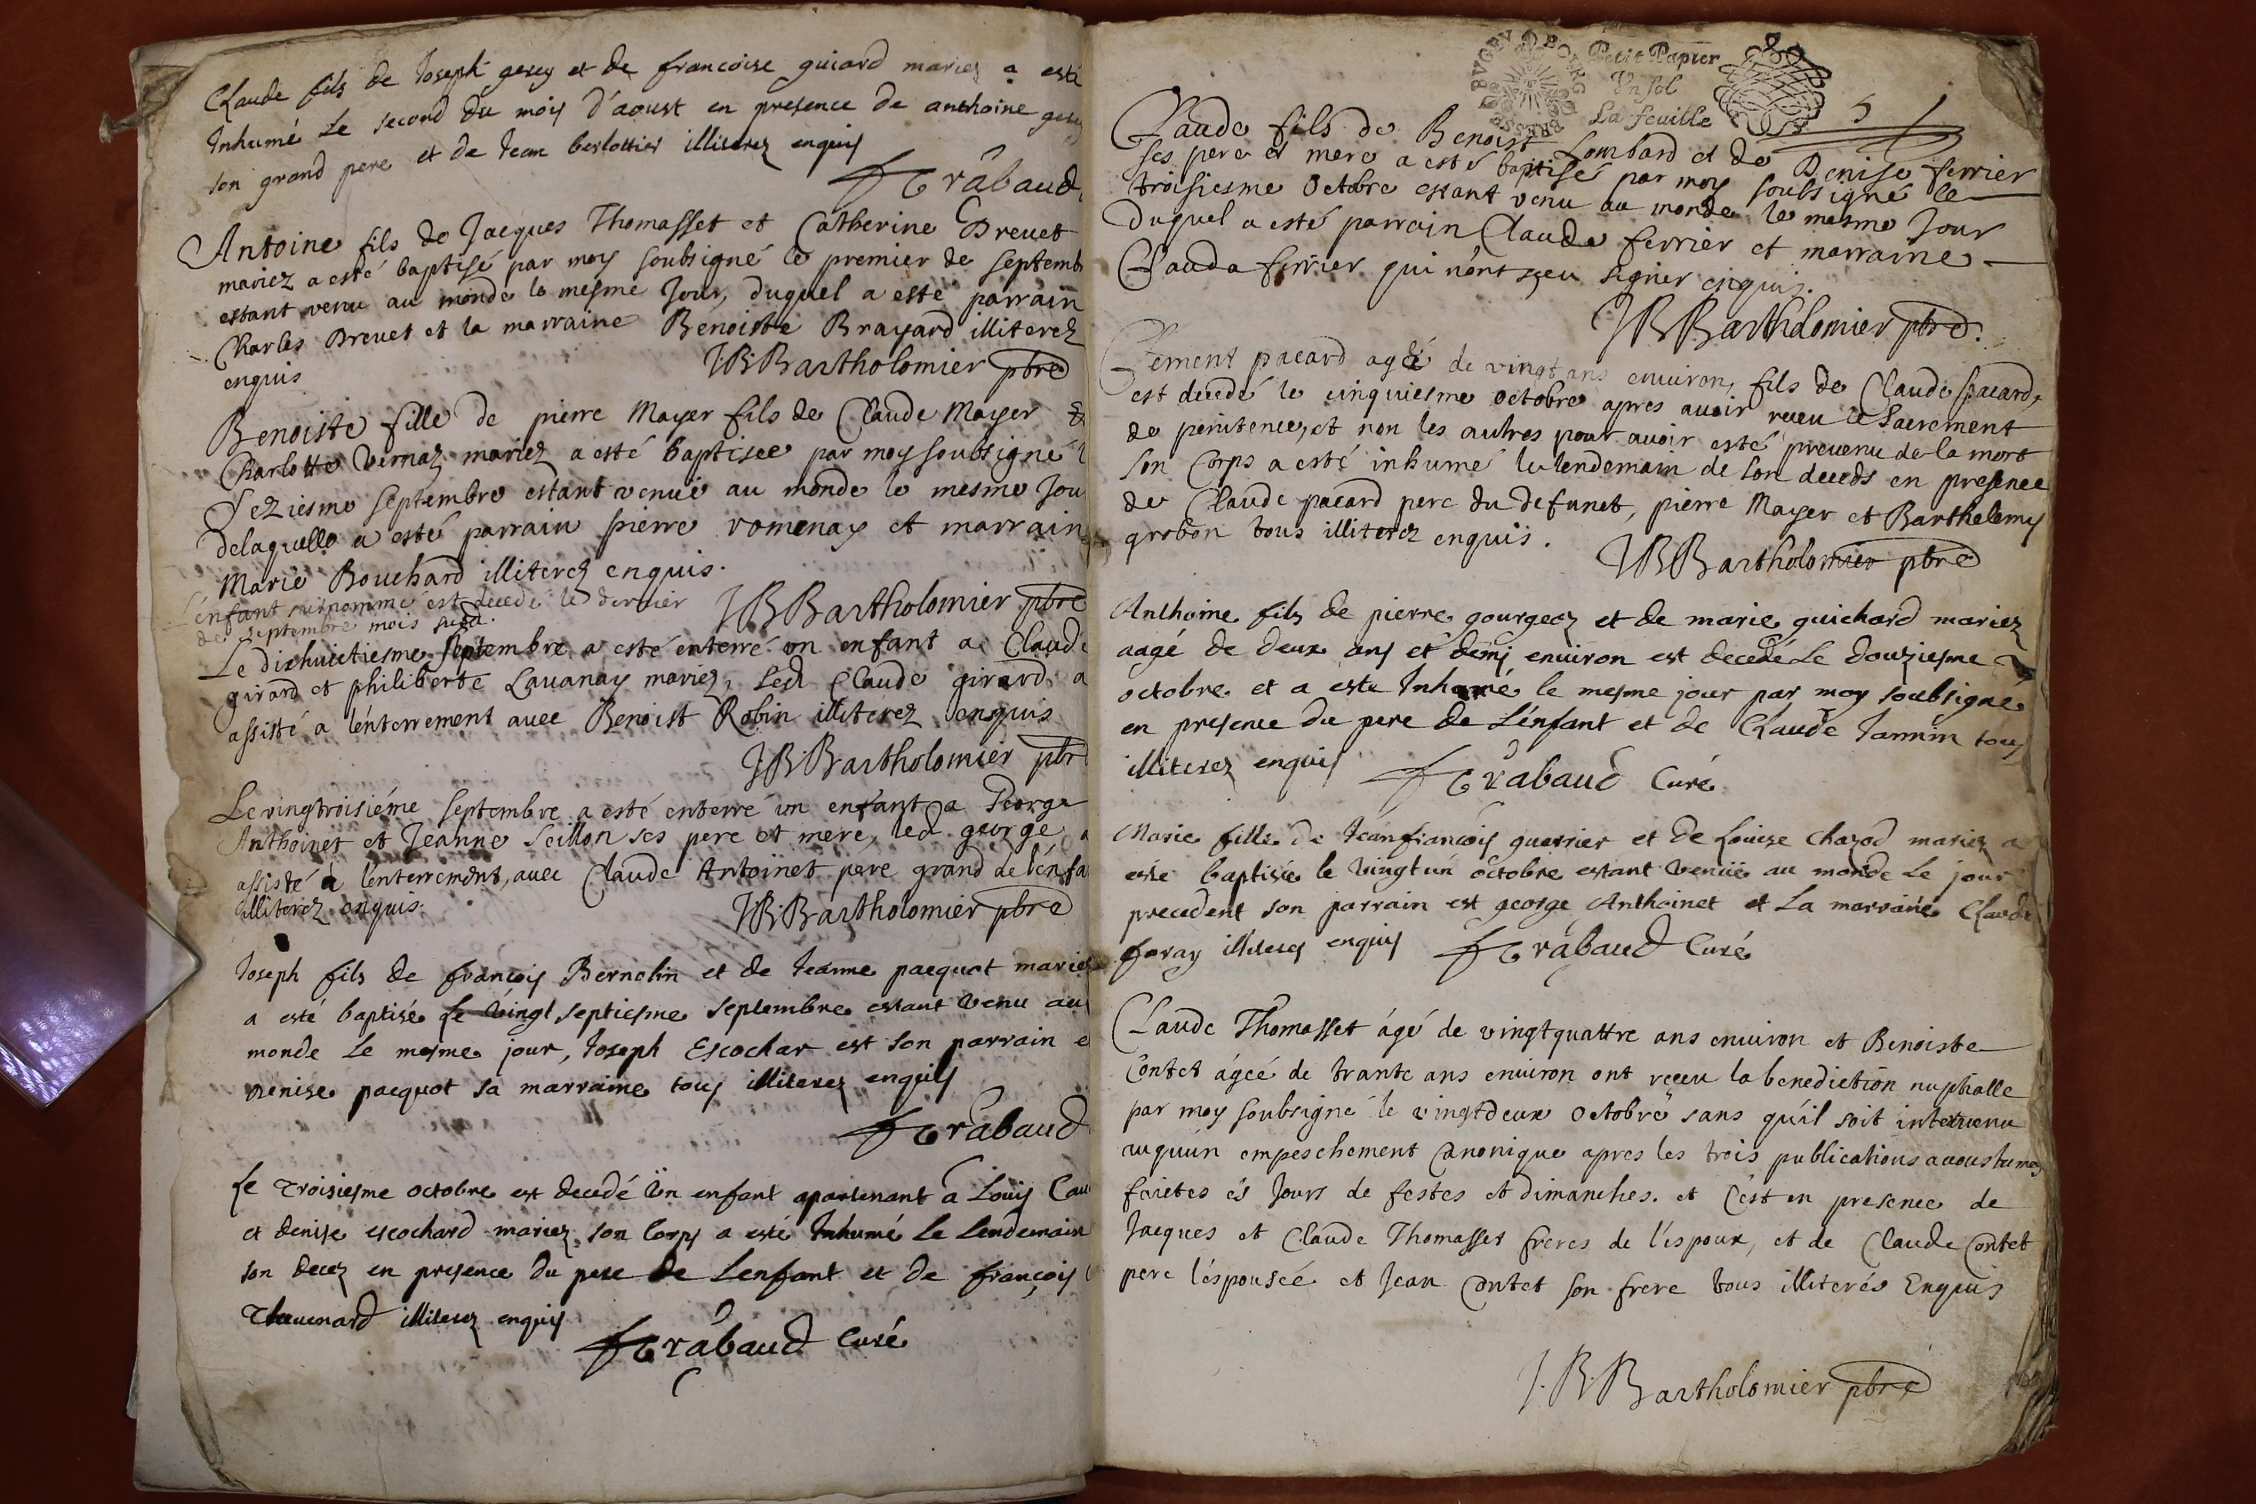 Claude fils de Joseph gesey et de francoise guiard mariez a esté
Inhumé Le second du mois d'aoust en presence de anthoine gesey
son grand pere et de Jean berlottier illiterez enquis
Trabaud
Antoine fils de Jacques Thomasset et Catherine Drevet
mariez a esté baptisé par moy soubsigné le premier de septemb
estant venu au monde le mesme Jour, duquel a esté parrain
Charles Drevet et la marraine Benoiste Brayard illiterez
enquis
J.B.Bartholomier pbre
Benoiste fille de pierre Mayer fils de Claude Mayer &
Charlotte Vernaz mariez a esté baptisee par moy soubsigné l
seziesme septembre estant venue au monde le mesme Jou
delaquelle a esté parrain pierre romenay et marrain
Marie Bouchard illiterez enquis.
L'enfant surnommé est decedé le dernier
de septembre mois susd.
JBBartholomier pbre
Le dixhuictiesme septembre a esté enterré un enfant a Claude
girard et philiberte Lavanay mariez, led Claude girard a
assisté a l'enterrement avec Benoist Robin illiterez enquis
J.B.Bartholomier pbr
Le vingtroisiéme septembre a esté enterré un enfant a George
Anthoinet et Jeanne Seillon ses pere et mere, led george a
assisté a l'enterrement, avec Claude Antoinet pere grand de l'enfa
illiterez enquis.
J.B.Bartholomier pbre
Joseph fils de françois Bernolin et de Jeanne pacquot mariez
a esté baptisé Le vingt septiesme septembre estant venu au
monde Le mesme jour, Joseph Escochar est son parrain e
Denise pacquot sa marraine tous illiterez enquis
Trabaud
Le troisiesme octobre est decedé un enfant apartenant a Louis Cau
et denise escochard mariez son Corps a esté Inhumé Le Lendemain
son decez en presence du pere de Lenfant et de françois
Thevenard illiterez enquis
Trabaud Curé
BRESSE BVGEY BOVRG
Petit Papier
Un sol
La feuille
51
Claude fils de Benoist Lombard et de Denise ferrier
ses pere et mere a esté baptisé par moy soubsigné le
troisiesme Octobre estant venu au monde le mesme Jour
duquel a esté parrain Claude ferrier et marraine
Clauda ferrier qui n'ont sçeu signer enquis.
JBBartholomier pbre.
Clement pacard agé de vingt ans environ, fils de Claude pacard,
est decedé le cinquiesme octobre apres avoir receu le Sacrement
de penitence, et non les autres pour avoir esté prevenu de la mort
son Corps a esté inhumé le lendemain de son deceds en presence
de Claude pacard pere du defunct, pierre Mayer et Barthelemy
grobon tous illiterez enquis.
JBBartholomier pbre
Anthoine fils de pierre gourgeoz et de marie guichard mariez
aagé de deux ans et demi environ est decedé Le douziesme
octobre et a este Inhumé le mesme jour par moy soubsigné
en presence du pere de L'enfant et de Claude Jannin tous
illiterez enquis
Trabaud Curé
Marie fille de Jeanfrançois guerrier et de Louise Chazod mariez a
esté baptisée le vingt un octobre estant venüe au monde Le jour
precedent son parrain est george Anthoinet et La marraine Claude
foray illiterez enquis
Trabaud Curé
Claude Thomasset ágé de vingtquattre ans environ et Benoiste
Contet ágée de trante ans environ ont reçeu la benediction nuptialle
par moy soubsigné le vingtdeux Octobre sans qu'il soit intervenu
auquun empeschement Canonique apres les trois publications accoustumez
faictes és Jours de festes et dimanches. et C'est en presence de
Jacques et Claude Thomasset freres de l'espoux, et de Claude Contet
pere l'espousée et Jean Contet son frere tous illiterés Enquis
J.B.Bartholomier pbre